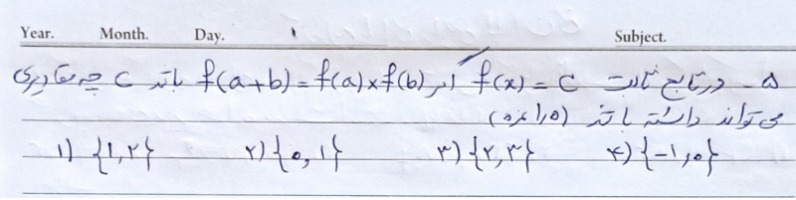 Year. Month. Day. Subject.
۵ـ در تابع ثابت f(x) = c اگر f(a+b) = f(a)×f(b) باشد c چه مقادیری
می‌تواند داشته باشد (۱٫۵ نمره)
۱) {۱,۲} ۲) {۰, ۱} ۳) {۲,۳} ۴) {-۱,۰}